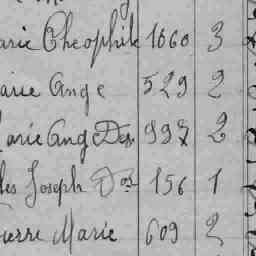 arie Theophile 1060 3
arie Ange 529 2
Marie Ang Des 997 2
les Joseph Dos 156 1
ierre Marie 609 2